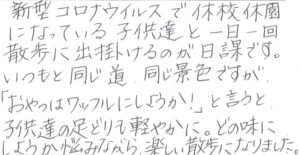 新型コロナウイルスで休校休園
になっている子供達と一日一回
散歩に出掛けるのが日課です。
いつもと同じ道、同じ景色ですが、
「おやつはワッフルにしようか!」と言うと、
子供達の足どりも軽やかに。どの味に
しようか悩みながら、楽しい散歩になりました。